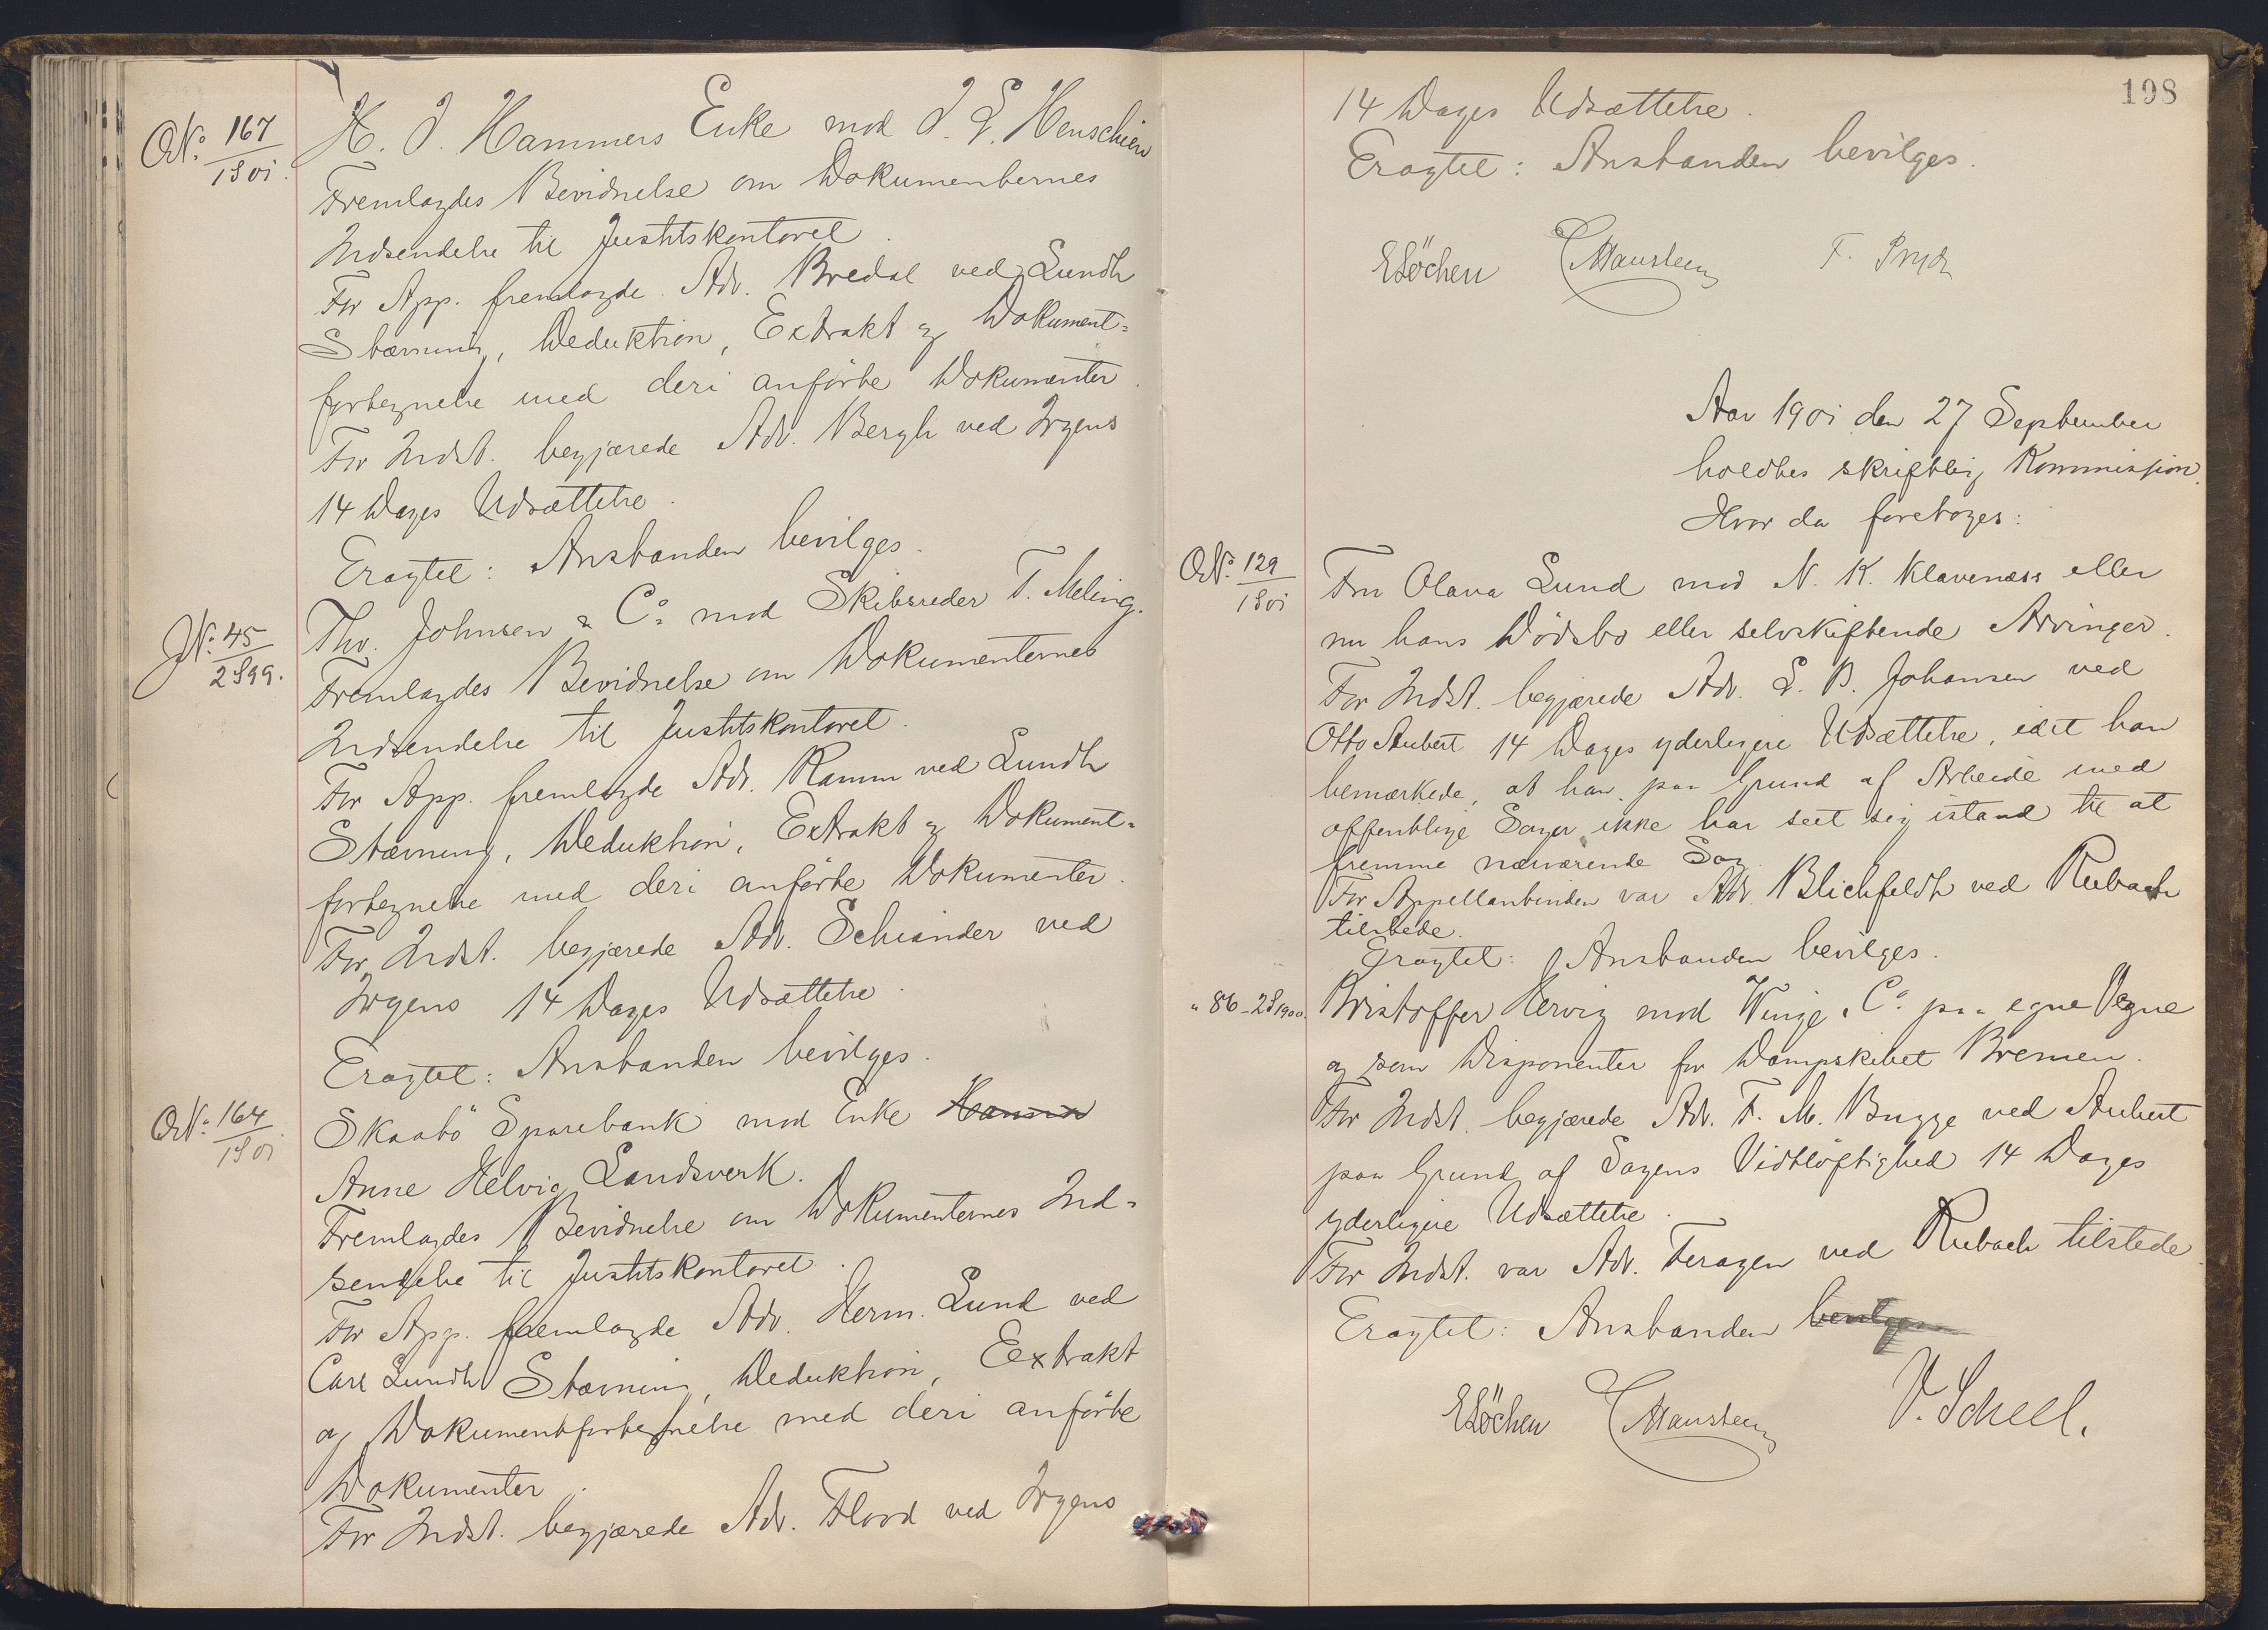 No. 167
1901.
H. J. Hammers Enke mod J. L. Henschien
Fremlagdes Bevidnelse om Dokumenternes
Indsendelse til Justitskontoret.
For App. fremlagde Adv. Bredal ved Lundh
Stævning, Deduktion, Extrakt og Dokument-
fortegnelse med deri anførte Dokumenter.
For Indst. begjærede Adv. Bergh ved Irgens
14 Dages Udsættelse.
Eragtet: Anstanden bevilges.
No. 45
2 S 99.
Thv. Johnsen & Co. mod Skibsreder T. Meling.
Fremlagdes Bevidnelse om Dokumenternes
Indsendelse til Justitskontoret.
For App. fremlagde Adv. Ramm ved Lundh
Stævning, Deduktion, Extrakt og Dokument-
fortegnelse med deri anførte Dokumenter.
For Indst. begjærede Adv. Schiander ved
Irgens 14 Dages Udsættelse.
Eragtet: Anstanden bevilges.
No. 164
1901
Skaabö Sparebank mod Enke
Anne Helvig Landsverk.
Fremlagdes Bevidnelse om Dokumenternes Ind-
sendelse til Justitskontoret.
For App. fremlagde Adv. Herm. Lund ved
Carl Lundh Stævning, Deduktion, Extrakt
og Dokumentfortegnelse med deri anførte
Dokumenter.
For Indst. begjærede Adv. Flood ved Irgens
198
14 Dages Udsættelse.
Eragtet: Anstanden bevilges.
ELöchen CHansteen F. Prydz
Aar 1901 den 27 September
holdtes skriftlig Kommission.
Hvor da foretoges:
No. 129
1901
Fru Olava Lund mod N. K. Klaveness eller
nu hans Dödsbo eller selvskiftende Arvinger.
For Indst. begjærede Adv. L. B. Johansen ved
Otto Aubert 14 Dages yderligere Udsættelse, idet han
bemærkede, at han paa Grund af Arbeide med
offentlige Sager ikke har seet sig istand til at
fremme nærværende Sag.
For Appellantinden var Adv. Blichfeldt ved Rubach
tilstede.
Eragtet: Anstanden bevilges.
" 86 - 2 S 1900.
Kristoffer Hervig mod Winge & Co. paa egne Vegne
og som Disponenter for Dampskibet Bremen.
For Indst. begjærede Adv. F. M. Bugge ved Aubert
paa Grund af Sagens Vidtløftighed 14 Dages
yderligere Udsættelse.
For Indst. var Adv. Feragen ved Rubach tilstede
Eragtet: Anstanden bevilges
ELöchen CHansteen V. Scheel.